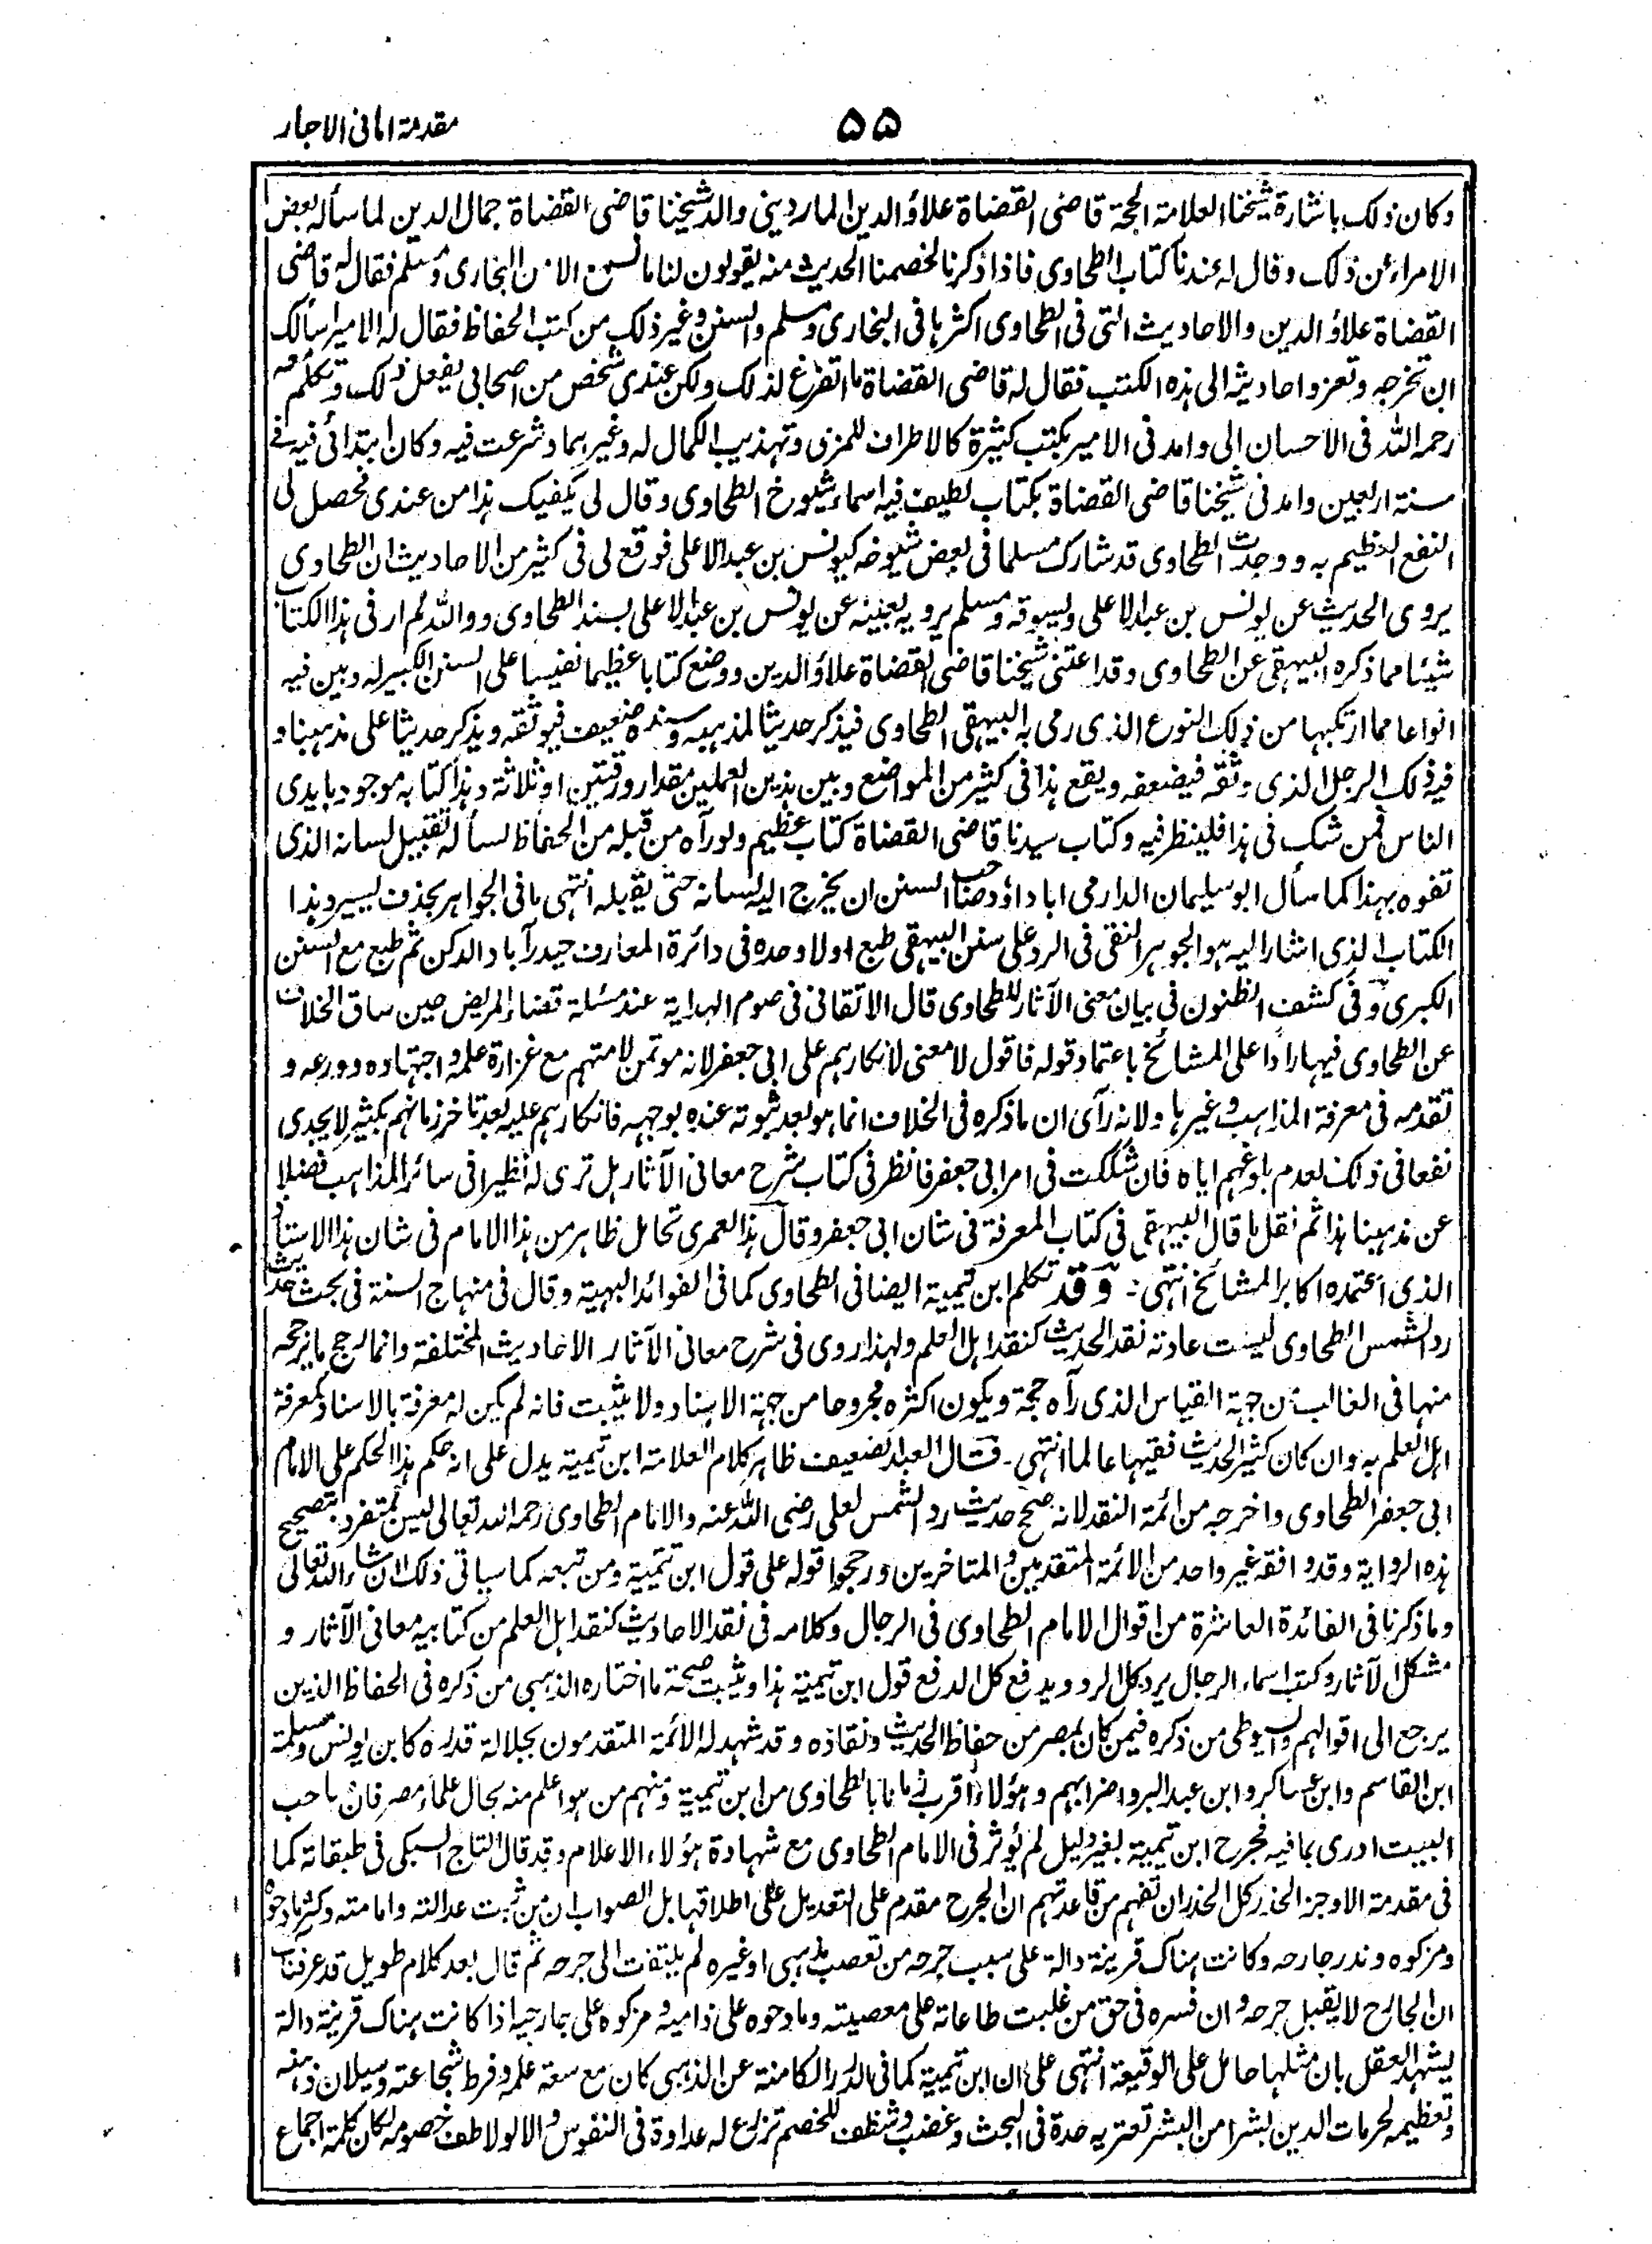 مقدمة امانی الاحبار
۵۵
وکان ذلک باشارة شیخنا العلامة الحجة قاضی القضاة علاؤ الدین الماردینی والد شیخنا قاضی القضاة جمال الدین لما سأله بعض
الامراء عن ذلک وقال له عندنا کتاب الطحاوی فاذا ذکرنا لخصمنا الحدیث منه یقولون لنا ما نسمع الا من البخاری ومسلم فقال له قاضی
القضاة علاؤ الدین والاحادیث التی فی الطحاوی اکثرها فی البخاری ومسلم والسنن وغیر ذلک من کتب الحفاظ فقال له الامیر اسألک
ان تخرجه وتعزو احادیثه الی هذه الکتب فقال له قاضی القضاة ما اتفرغ لذلک ولکن عندی شخص من اصحابی یفعل ذلک وتکلم معه
رحمه الله فی الاحسان الی وامدنی الامیر بکتب کثیرة کالاطراف للمزی وتهذیب الکمال له وغیرهما وشرعت فیه وکان ابتدائی فیه فی
سنة اربعین وامدنی شیخنا قاضی القضاة بکتاب لطیف فیه اسماء شیوخ الطحاوی وقال لی یکفیک هذا من عندی فحصل لی
النفع العظیم به ووجدت الطحاوی قد شارک مسلما فی بعض شیوخه کیونس بن عبد الاعلی فوقع لی فی کثیر من الاحادیث ان الطحاوی
یروی الحدیث عن یونس بن عبد الاعلی ویسوقه ومسلم یرویه بعینه عن یونس بن عبد الاعلی بسند الطحاوی ووالله لم ار فی هذا الکتاب
شیئا مما ذکره البیهقی عن الطحاوی وقد اعتنی شیخنا قاضی القضاة علاؤ الدین ووضع کتابا عظیما نفیسا علی السنن الکبیر له وبین فیه
انواعا مما ارتکبها من ذلک النوع الذی رمی به البیهقی الطحاوی فیذکر حدیثا لمذهبه وسنده ضعیف فیوثقه ویذکر حدیثا علی مذهبنا و
فیه ذلک الرجل الذی وثقه فیضعفه ویقع هذا فی کثیر من المواضع وبین هذین العملین مقدار ورقتین او ثلاثة وهذا کتابه موجود بایدی
الناس فمن شک فی هذا فلینظر فیه وکتاب سیدنا قاضی القضاة کتاب عظیم ولو رآه من قبله من الحفاظ لسأله تقبیل لسانه الذی
تفوه بهذا کما سأل ابو سلیمان الدارمی ابا داؤد صاحب السنن ان یخرج الیه لسانه حتی یقبله انتهی ما فی الجواهر بحذف یسیر وهذا
الکتاب الذی اشار الیه هو الجوهر النقی فی الرد علی سنن البیهقی طبع اولا وحده فی دائرة المعارف حیدرآباد الدکن ثم طبع مع السنن
الکبری وفی کشف الظنون فی بیان معنی الآثار للطحاوی قال الاتقانی فی صوم الهدایة عند مسئلة قضاء المریض حین ساق الخلاف
عن الطحاوی فیها رادا علی المشائخ باعتماد قوله فاقول لا معنی لانکارهم علی ابی جعفر لانه موتمن لا متهم مع غزارة علمه واجتهاده وورعه و
تقدمه فی معرفة المذاهب وغیرها ولانه رآی ان ماذکره فی الخلاف انما هو بعد ثبوته عنده بوجهه فانکارهم علیه بعد تاخر زمانهم بکثیر لا یجدی
نفعا فی ذلک لعدم بلوغهم ایاه فان شککت فی امر ابی جعفر فانظر فی کتاب شرح معانی الآثار هل تری له نظیرا فی سائر المذاهب فضلا
عن مذهبنا هذا ثم نقل ما قال البیهقی فی کتاب المعرفة فی شان ابی جعفر وقال هذا لعمری تحامل ظاهر من هذا الامام فی شان هذا الاستاذ
الذی اعتمده اکابر المشائخ انتهی:- وقد تکلم ابن تیمیة ایضا فی الطحاوی کما فی الفوائد البهیة وقال فی منهاج السنة فی بحث حدیث
رد الشمس الطحاوی لیست عادته نقد الحدیث کنقد اهل العلم ولهذا روی فی شرح معانی الآثار الاحادیث المختلفة وانما رجح ما یرجحه
منها فی الغالب من جهة القیاس الذی رآه حجة ویکون اکثره مجروحا من جهة الاسناد ولا یثبت فانه لم یکن له معرفة بالاسناد کمعرفة
اهل العلم به وان کان کثیر الحدیث فقیها عالما انتهی۔ قال العبد الضعیف ظاهر کلام العلامة ابن تیمیة یدل علی انه حکم هذا الحکم علی الامام
ابی جعفر الطحاوی واخرجه من ائمة النقد لانه صحح حدیث رد الشمس لعلی رضی الله عنه والامام الطحاوی رحمه الله تعالی لیس بمتفرد بتصحیح
هذه الروایة وقد وافقه غیر واحد من الائمة المتقدمین والمتاخرین ورجحوا قوله علی قول ابن تیمیة ومن تبعه کما سیاتی ذلک ان شاء الله تعالی
وما ذکرنا فی الفائدة العاشرة من اقوال الامام الطحاوی فی الرجال وکلامه فی نقد الاحادیث کنقد اهل العلم من کتابیه معانی الآثار و
مشکل الآثار وکتب اسماء الرجال یرد کل الرد ویدفع کل الدفع قول ابن تیمیة هذا ویثبت صحة ما اختاره الذهبی من ذکره فی الحفاظ الذین
یرجع الی اقوالهم والسیوطی من ذکره فیمن کان بمصر من حفاظ الحدیث ونقاده وقد شهد له الائمة المتقدمون بجلالة قدره کابن یونس ومسلمة
ابن القاسم وابن عساکر وابن عبد البر واضرابهم وهؤلاء اقرب زمانا بالطحاوی من ابن تیمیة ومنهم من هو اعلم منه بحال علماء مصر فان صاحب
البیت ادری بما فیه فجرح ابن تیمیة بغیر دلیل لم یؤثر فی الامام الطحاوی مع شهادة هؤلاء الاعلام وقد قال التاج السبکی فی طبقاته کما
فی مقدمة الاوجز الحذر کل الحذر ان تفهم من قاعدتهم ان الجرح مقدم علی التعدیل علی اطلاقها بل الصواب ان من ثبت عدالته وامامته وکثر مادحوه
ومزکوه وندر جارحه وکانت هناک قرینة دالة علی سبب جرحه من تعصب مذهبی او غیره لم یلتفت الی جرحه ثم قال بعد کلام طویل قد عرفناک
ان الجارح لا یقبل جرحه وان فسره فی حق من غلبت طاعاته علی معصیته ومادحوه علی ذامیه ومزکوه علی جارحیه اذا کانت هناک قرینة دالة
یشهد العقل بان مثلها حامل علی الوقیعة انتهی علی ان ابن تیمیة کما فی الدرر الکامنة عن الذهبی کان مع سعة علمه وفرط شجاعته وسیلان ذهنه
وتعظیمه لحرمات الدین بشرا من البشر تعتریه حدة فی البحث وغضب وشظف للخصم تزرع له عداوة فی النفوس والا لو لاطف خصومه لکان کلمة اجماع